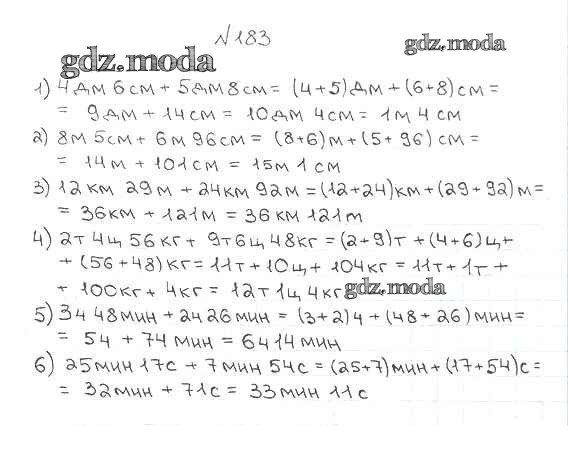 №183
gdz.moda
gdz.moda
1) 4дм 6см + 5дм 8см = (4+5)дм + (6+8)см =
= 9дм + 14см = 10дм 4см = 1м 4см
2) 8м 5см + 6м 96см = (8+6)м + (5+96)см =
= 14м + 101см = 15м 1см
3) 12км 29м + 24км 92м = (12+24)км + (29+92)м =
= 36км + 121м = 36км 121m
4) 2т 4ц 56кг + 9т 6ц 48кг = (2+9)т + (4+6)ц +
+ (56+48)кг = 11т + 10ц + 104кг = 11т + 1т +
+ 100кг + 4кг = 12т 1ц 4кг
gdz.moda
5) 3ч 48мин + 2ч 26мин = (3+2)ч + (48+26)мин =
= 5ч + 74мин = 6ч 14мин
6) 25мин 17с + 7мин 54с = (25+7)мин + (17+54)с =
= 32мин + 71с = 33мин 11с